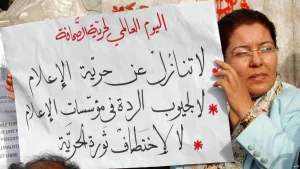 اليوم العالمي لحرية الصحافة
لا تنازل عن حرية الإعلام
* لا لجيوب الردة في مؤسسات الإعلام
* لا لإختطاف ثورة الحرية